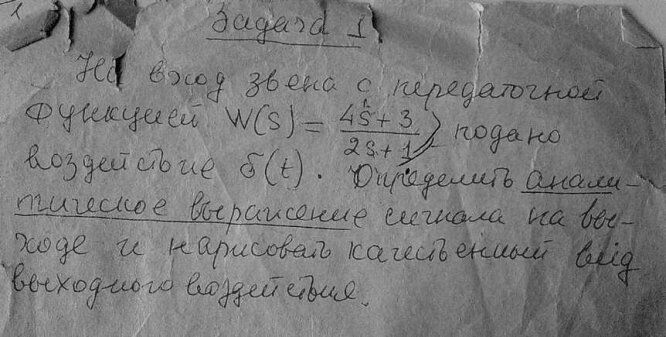 1
Задача 1
На вход звена с передаточной
функцией W(s) = (4s+3)/(2s+1) подано
воздействие δ(t). Определить анали-
тическое выражение сигнала на вы-
ходе и нарисовать качественный вид
выходного воздействия.